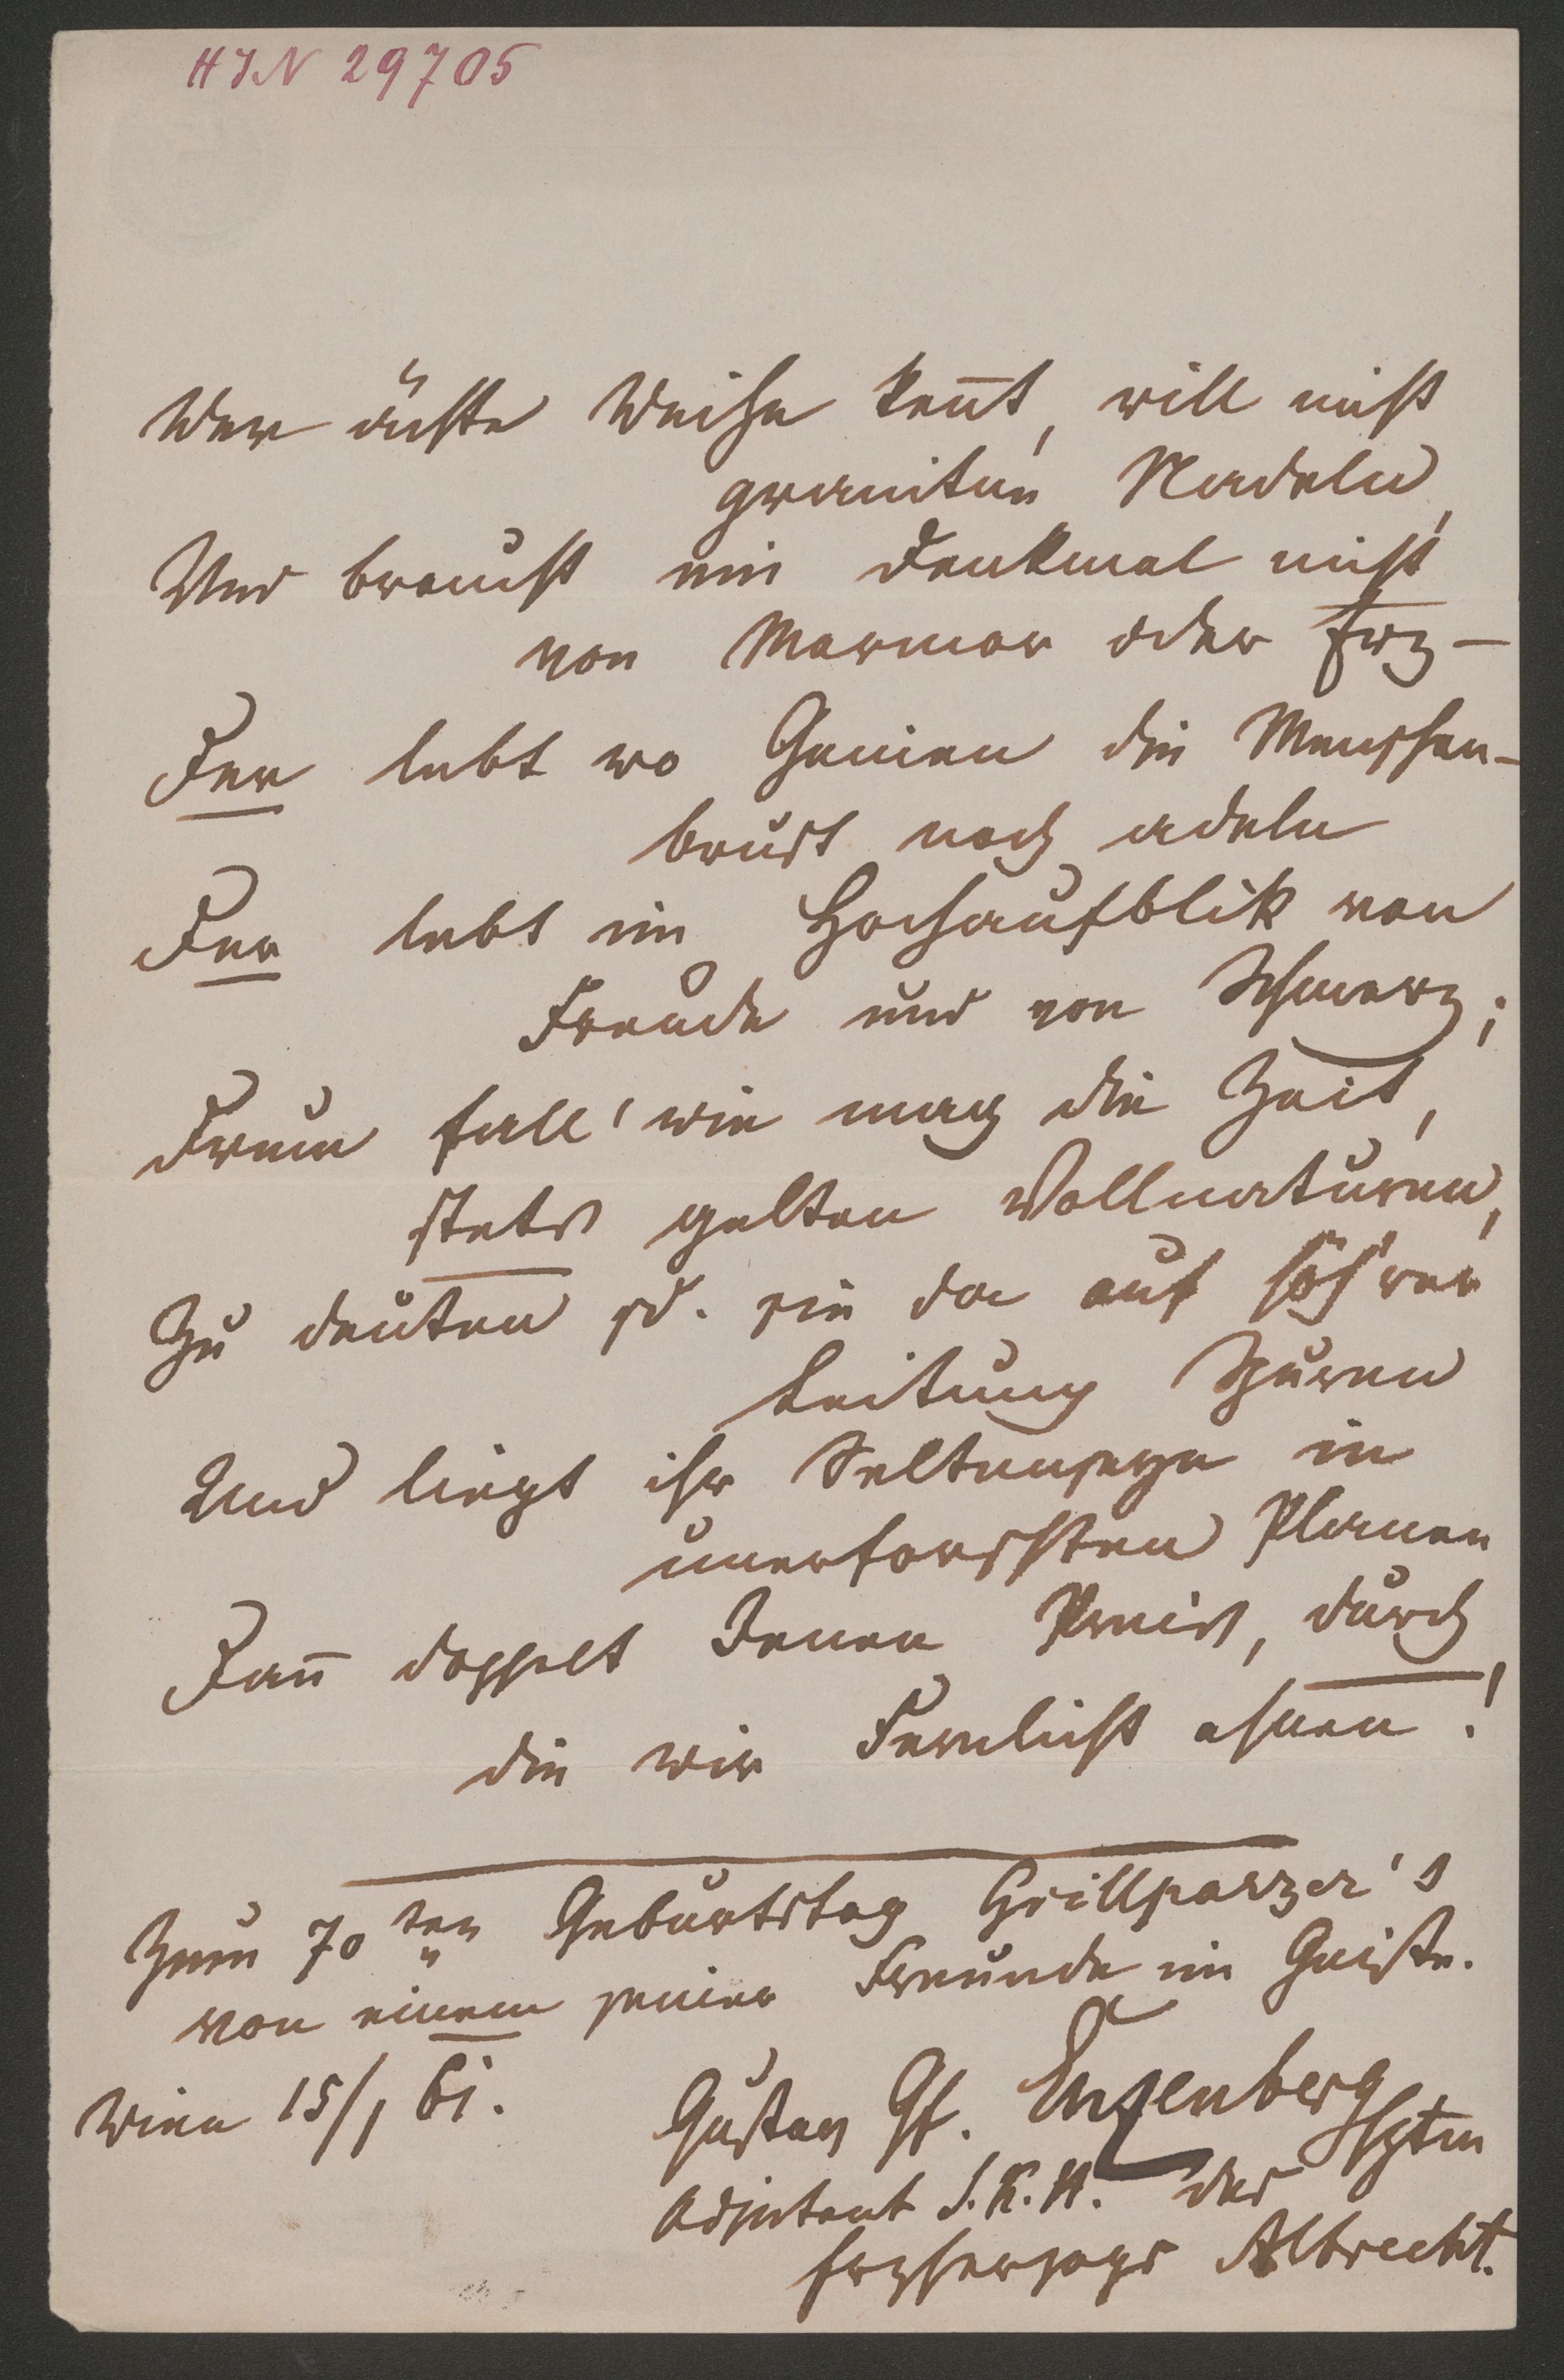 HIN 29705
Wer ächte Weihe kennt, will nicht
graniten Nadeln,
Und braucht ein Denkmal nicht
von Marmor oder Erz –
Der lebt wo Genien die Menschen-
brust noch adeln
Der lebt im Hochaufblik von
Freude und von Schmerz;
Drum fall' wie mag die Zeit,
stets gelten Vollnaturen,
Zu deuten sd. sie da auf höh'rer
Leitung Spuren
Und liegt ihr Seltensein in
unerforschten Planen
Dann doppelt Jenen Preis, durch
die wir Fernlicht ahnen!
Zum 70ten Geburtstag Grillparzer's
von einem seiner Freunde im Geiste.
Wien 15/1 61.
Gustav Gf. Enzenberg
Hptm
Adjutant S. K. H. des
Erzherzogs Albrecht.